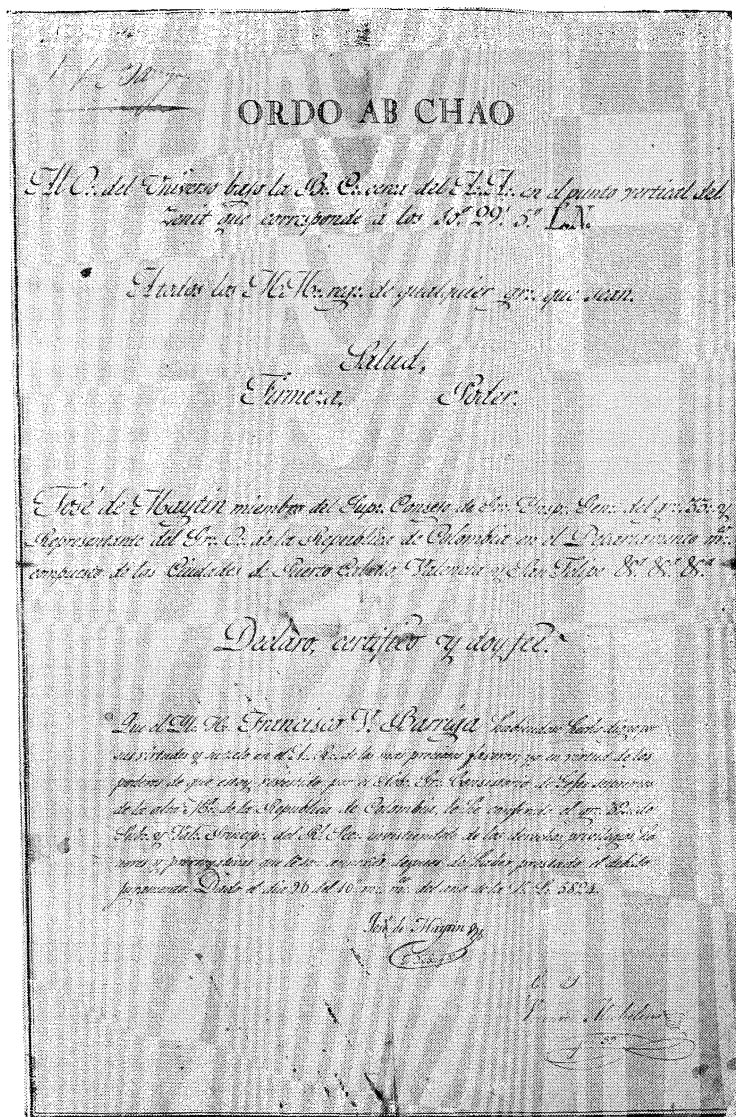 ORDO AB CHAO
Al O∴ del Universo bajo la B∴ C∴ cerca del A∴ A∴ en el punto vertical del
Zenit que corresponde á los 10.º 29.' 5." L.N.
A todos los M∴ M∴ reg∴ de qualquier gr∴ que sean.
Salud,
Firmeza, Poder.
José de Maytin miembro del Sup∴ Consejo de Gr∴ Insp∴ Gen∴ del gr∴ 33∴ y
Representante del Gr∴ O∴ de la Republica de Colombia en el Departamento m∴
compuesto de las Ciudades de Puerto Cabello, Valencia y San Felipe &ª &ª &ª
Declaro, certifico y doy feé.
Que el M∴ H∴ Francisco V. Barriga habiendose hecho digno por
sus virtudes y de las mas preciosos favores, yo en virtud de los
poderes de que estoy revestido por el Gr∴ Consistorio de Gefes
de la alta de la Republica de Colombia, le he conferido el gr∴ 32∴ de
Subl∴ y Val∴ Princip∴ del Rl∴ Sec∴ de los derechos, privilegios, ho
nores y prerrogativas que despues de haber prestado el debido
juramento. Dado el dia 26 del 10.º m∴ m∴ del año de la V∴ L∴ 5824.
José de Maytin